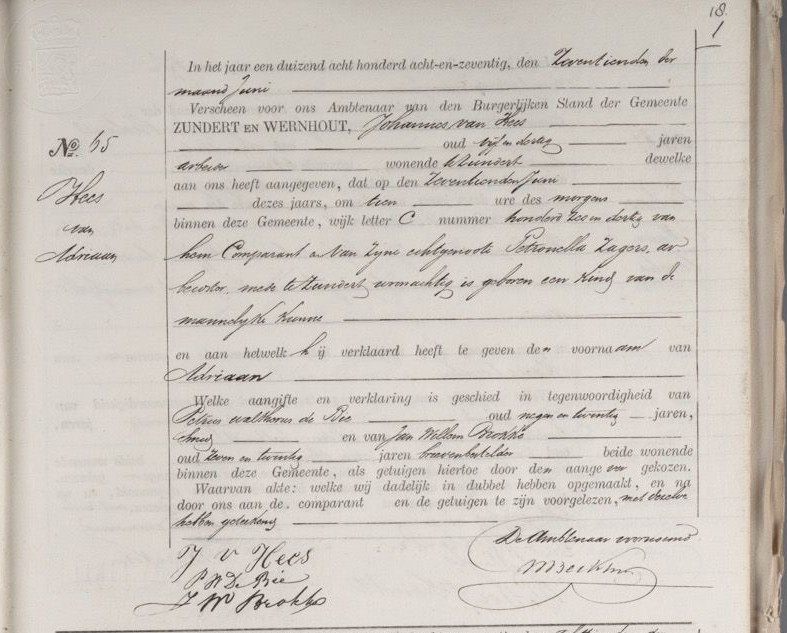 18.
1
In het jaar een duizend acht honderd acht-en-zeventig, den Zeventienden der
maand Juni
Verscheen voor ons Ambtenaar van den Burgerlijken Stand der Gemeente
ZUNDERT EN WERNHOUT, Johannes van Hees
oud vijf en dertig jaren
arbeider wonende te Zundert dewelke
aan ons heeft aangegeven, dat op den Zeventienden Juni
dezes jaars, om tien ure des morgens
binnen deze Gemeente, wijk letter C nummer honderd zes en dertig van
hem Comparant en van zijne echtgenoote Petronella Zagers, ar
beidster, mede te Zundert woonachtig is geboren een kind van de
mannelijke kunne
en aan hetwelk hij verklaard heeft te geven den voornaam van
Adriaan
Welke aangifte en verklaring is geschied in tegenwoordigheid van
Petrus de Bie oud negen en twintig jaren,
smid en van Jan Willem Brokke
oud zeven en twintig jaren brievenbesteller beide wonende
binnen deze Gemeente, als getuigen hiertoe door den aangever gekozen.
Waarvan akte: welke wij dadelijk in dubbel hebben opgemaakt, en na
door ons aan de comparant en de getuigen te zijn voorgelezen, met dezelve
hebben geteekend
No. 65
Hees
van
Adriaan
J v Hees
P W De Bie
J W Brokke
De Ambtenaar voornoemd